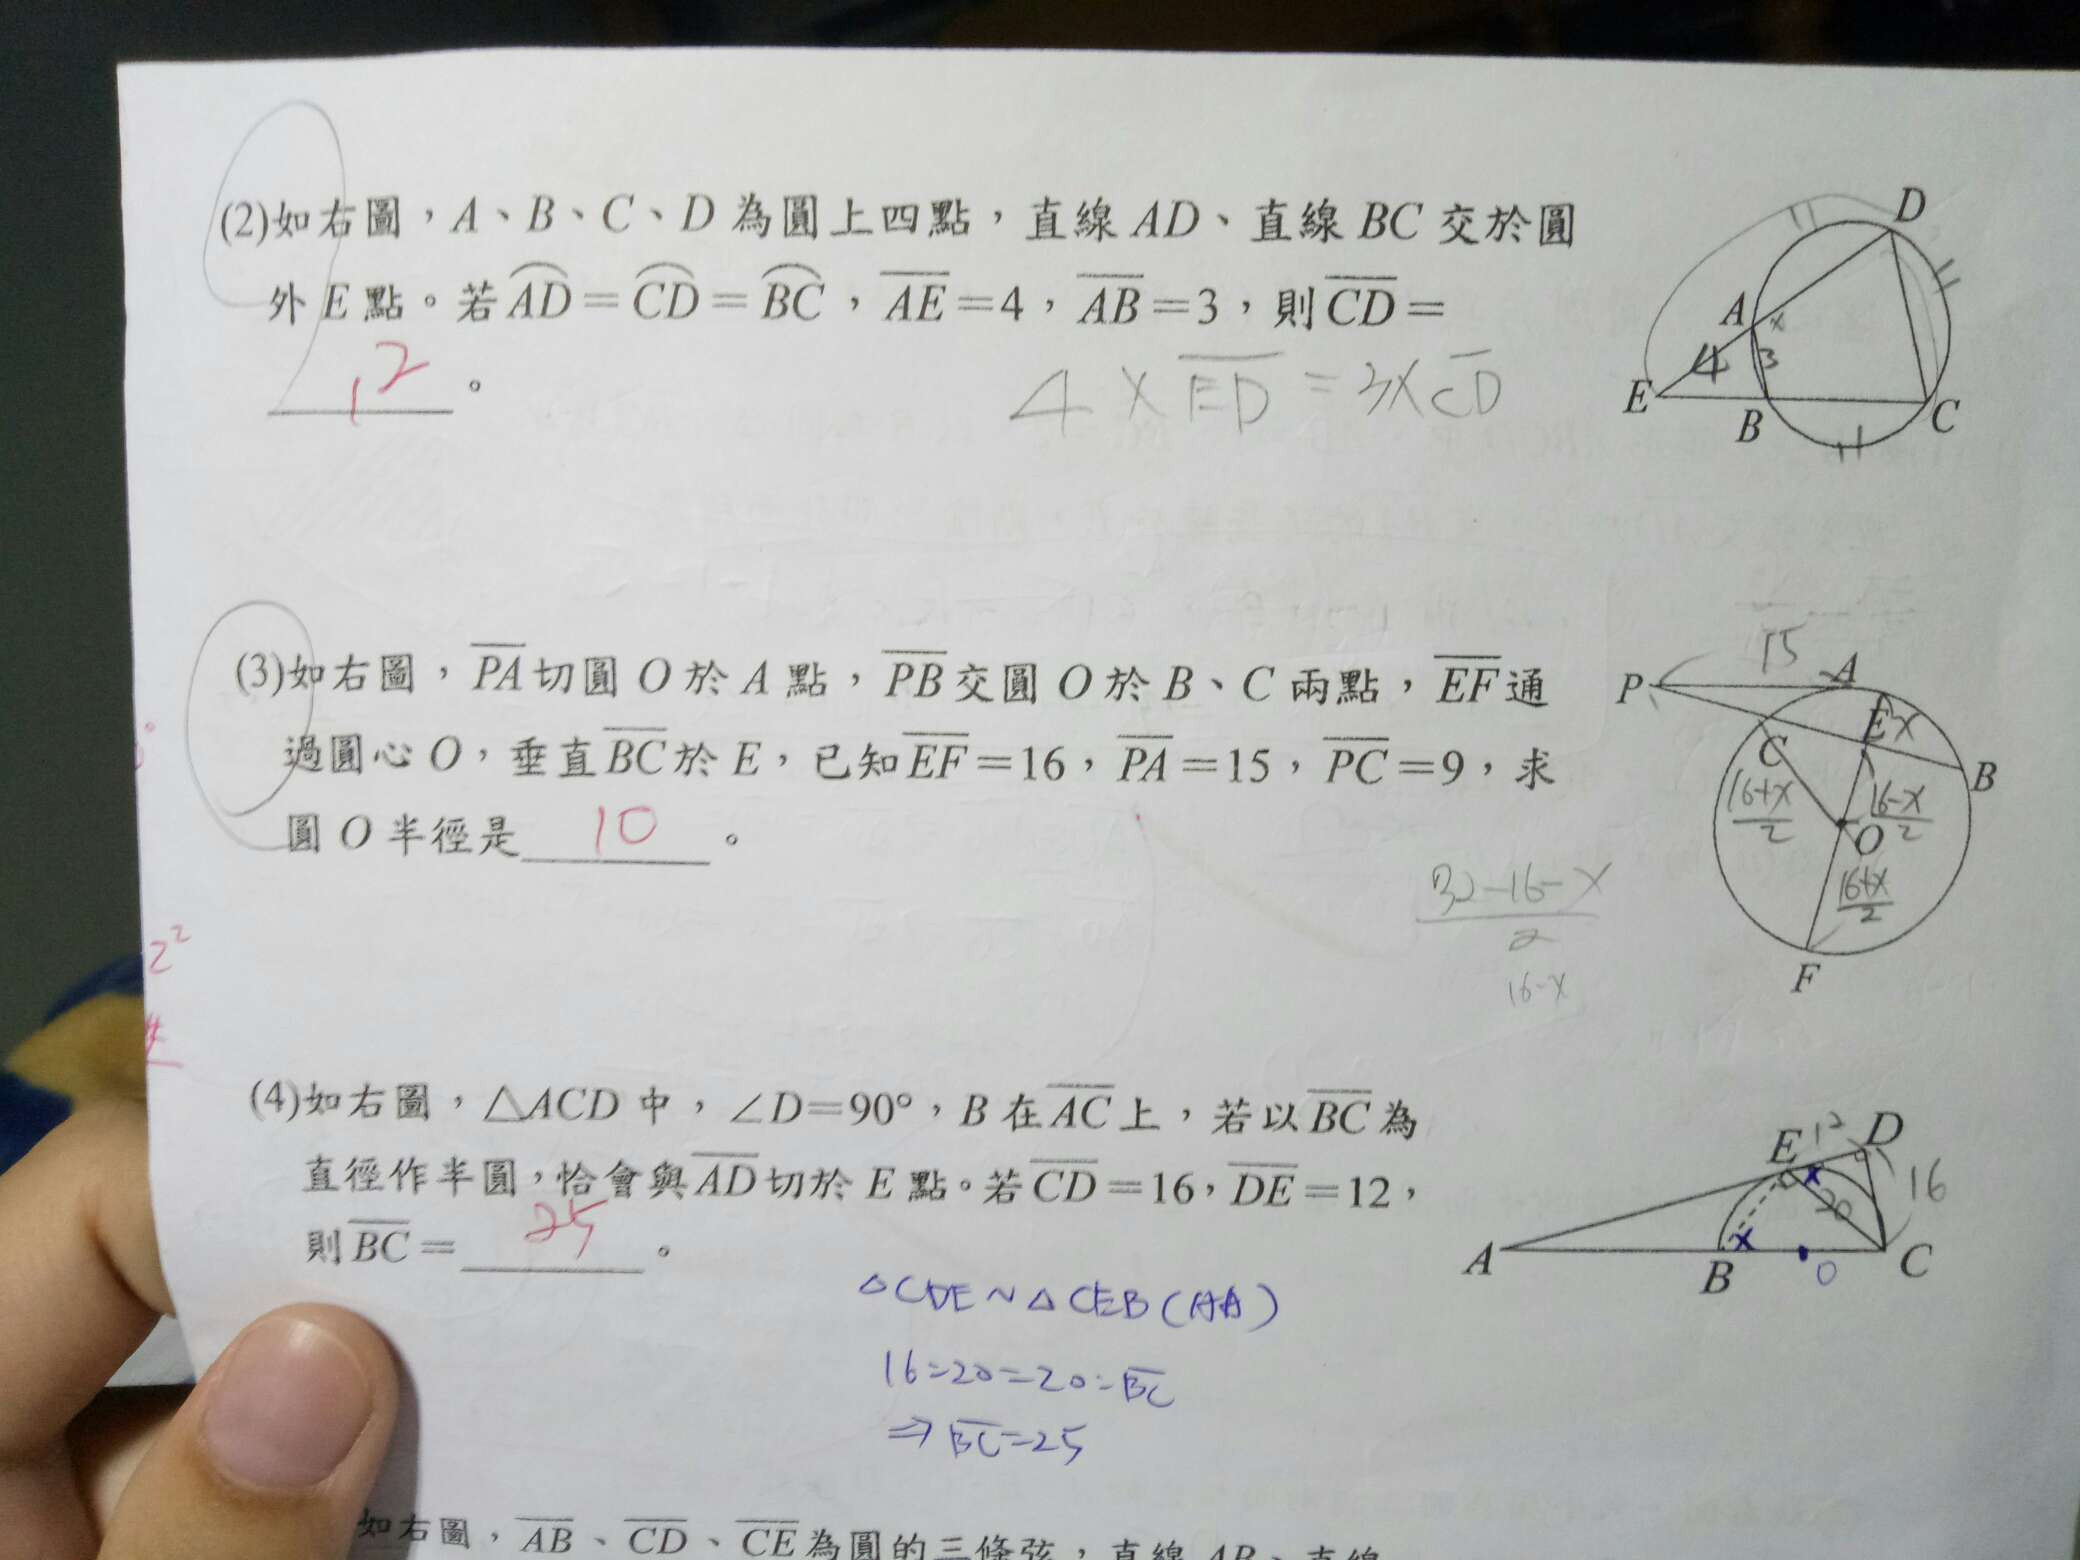 (2)如右圖，A、B、C、D 為圓上四點，直線 AD、直線 BC 交於圓
外 E 點。若 AD＝CD＝BC，AE＝4，AB＝3，則 CD＝
12。
4 × ED = 3 × CD
D
A
x
4
3
E
B
C
(3)如右圖，PA 切圓 O 於 A 點，PB 交圓 O 於 B、C 兩點，EF 通
過圓心 O，垂直 BC 於 E，已知 EF＝16，PA＝15，PC＝9，求
圓 O 半徑是 10。
32-16-x
2
16-x
15
P
A
E
x
C
B
16+x
2
16-x
2
O
16+x
2
F
2²
(4)如右圖，△ACD 中，∠D＝90°，B 在 AC 上，若以 BC 為
直徑作半圓，恰會與 AD 切於 E 點。若 CD＝16，DE＝12，
則 BC＝25。
△CDE~△CEB(AA)
16:20=20:BC
⇒BC=25
E
12
D
x
16
20
A
x
B
O
C
如右圖，AB、CD、CE 為圓的三條弦，直線 AB、直線